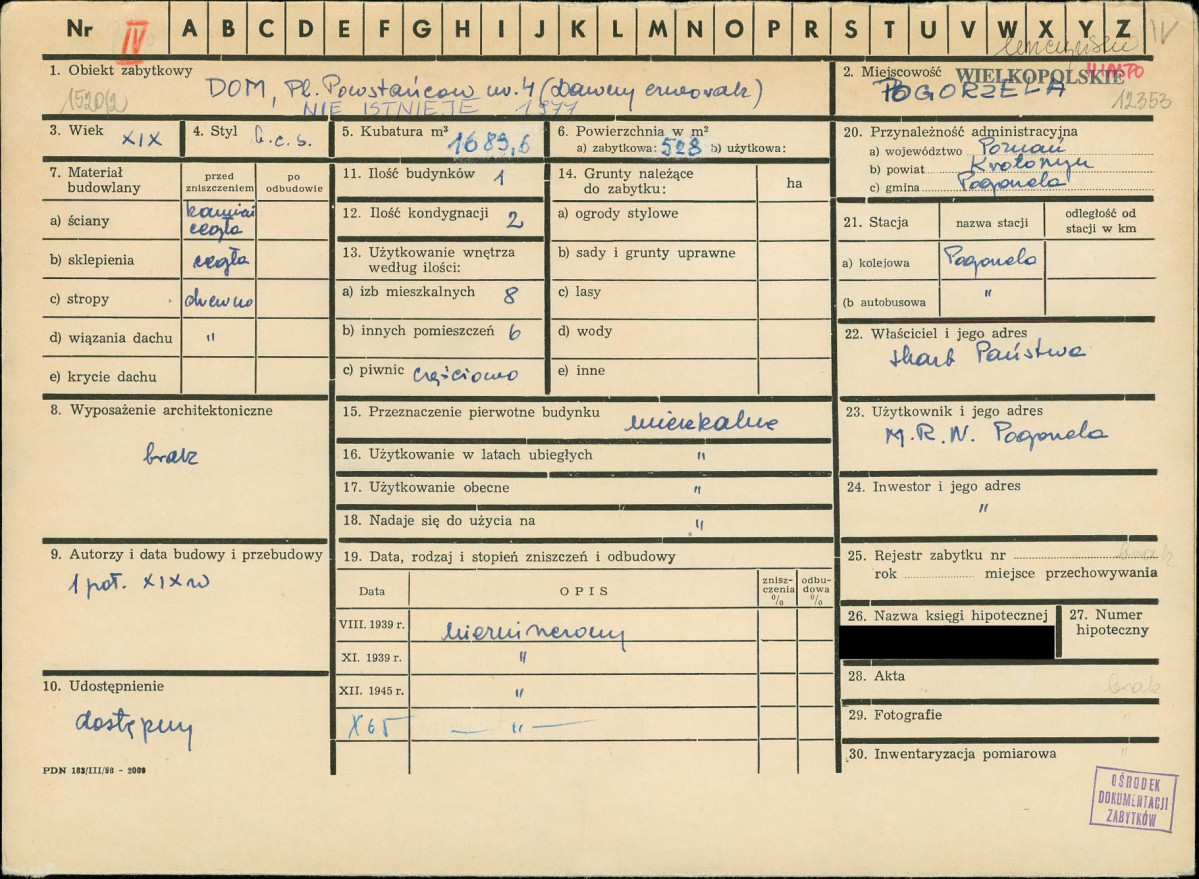 Nr IV A B C D E F G H I J K L M N O P R S T U V W X Y Z IV
1. Obiekt zabytkowy
DOM, Pl. Powstańców nr. 4 (Dawny czworak)
NIE ISTNIEJE 1977
2. Miejscowość WIELKOPOLSKIE
POGORZELA
12353
3. Wiek XIX
4. Styl b.c.s.
5. Kubatura m³ 1689,6
6. Powierzchnia w m²
a) zabytkowa: 528 b) użytkowa:
7. Materiał budowlany
przed zniszczeniem
po odbudowie
a) ściany kamień cegła
b) sklepienia cegła
c) stropy drewno
d) wiązania dachu "
e) krycie dachu
8. Wyposażenie architektoniczne
brak
9. Autorzy i data budowy i przebudowy
1 poł. XIX w
10. Udostępnienie
dostępny
PDN 183/III/56 - 2000
11. Ilość budynków 1
12. Ilość kondygnacji 2
13. Użytkowanie wnętrza
według ilości:
a) izb mieszkalnych 8
b) innych pomieszczeń 6
c) piwnic częściowo
14. Grunty należące
do zabytku:
ha
a) ogrody stylowe
b) sady i grunty uprawne
c) lasy
d) wody
e) inne
15. Przeznaczenie pierwotne budynku mieszkalne
16. Użytkowanie w latach ubiegłych "
17. Użytkowanie obecne "
18. Nadaje się do użycia na "
19. Data, rodzaj i stopień zniszczeń i odbudowy
Data OPIS znisz-czenia % odbu-dowa %
VIII. 1939 r.
XI. 1939 r. "
XII. 1945 r. "
X 65 — " —
20. Przynależność administracyjna
a) województwo Poznań
b) powiat Krotoszyn
c) gmina Pogorzela
21. Stacja
nazwa stacji
odległość od stacji w km
a) kolejowa Pogorzela
(b autobusowa "
22. Właściciel i jego adres
Skarb Państwa
23. Użytkownik i jego adres
M.R.N. Pogorzela
24. Inwestor i jego adres
"
25. Rejestr zabytku nr brak
rok miejsce przechowywania
26. Nazwa księgi hipotecznej
27. Numer
hipoteczny
28. Akta brak
29. Fotografie "
30. Inwentaryzacja pomiarowa "
OŚRODEK
DOKUMENTACJI
ZABYTKÓW